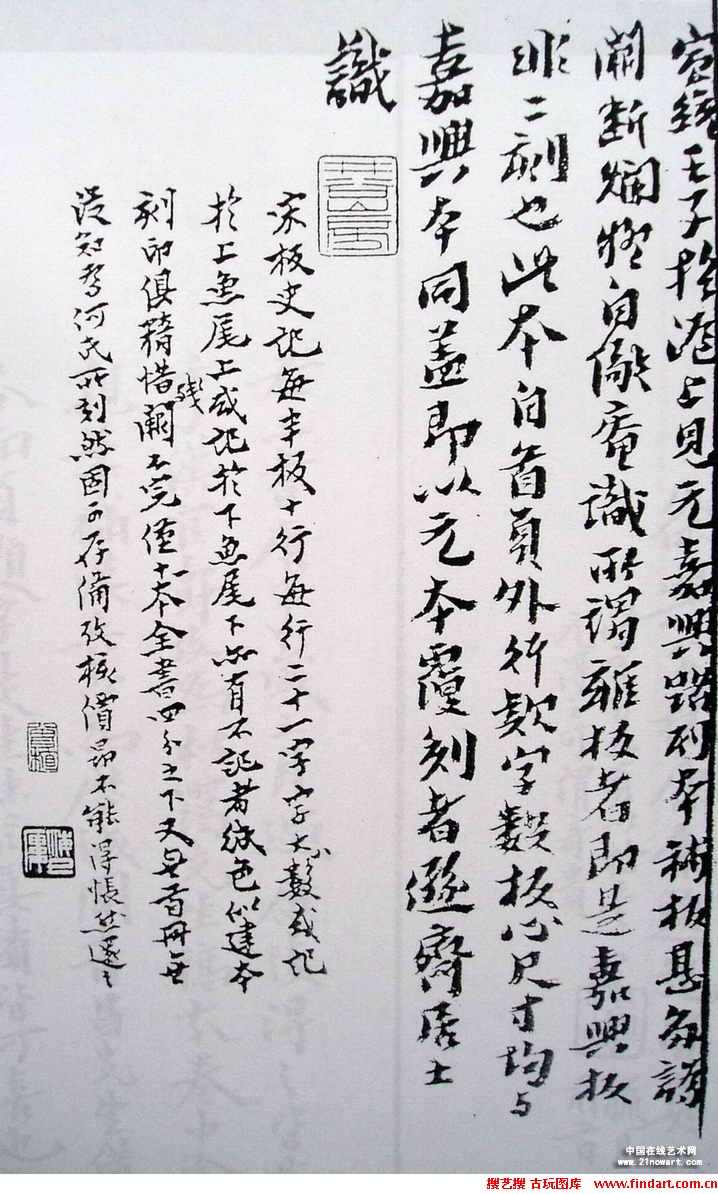 宣統壬子於滬上見元嘉興路刊本補板甚多譌
闕斷爛將自儆庵識所謂雜板者即是嘉興板
非二刻也此本自首頁外行款字數板心尺寸均与
嘉興本同盖即以元本覆刻者遯齋居士
識
宋板史記每半板十行每行二十一字字大數或記
於上魚尾上或記於下魚尾下亦有不記者紙色似建本
刻印俱精惜闕殘不完僅十本全書四分之下又無首冊無
從知為何氏所刻然固可存備攷核價昂不能得悵然還之
中国在线艺术网
www.21nowart.com
搜艺搜 古玩图库 www.findart.com.cn